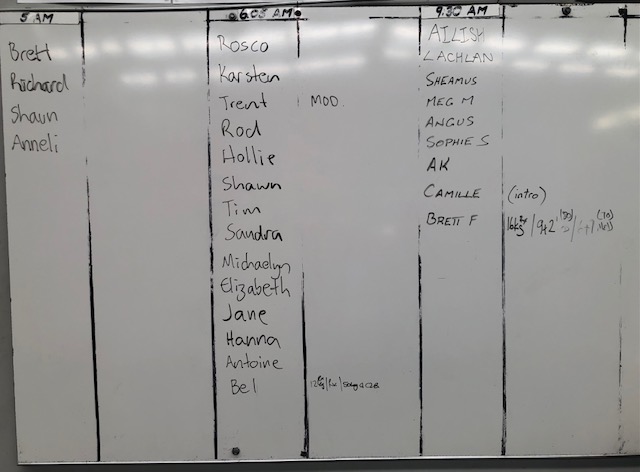 5 AM
Brett
Richard
Shaun
Anneli
6.05 AM
Rosco
Karsten
Trent MOD.
Rod
Hollie
Shawn
Tim
Sandra
Michaelyn
Elizabeth
Jane
Hanna
Antoine
Bel
9.30 AM
AILISH
LACHLAN
SHEAMUS
MEG M
ANGUS
SOPHIE S
AK
CAMILLE (intro)
BRETT F 16kg